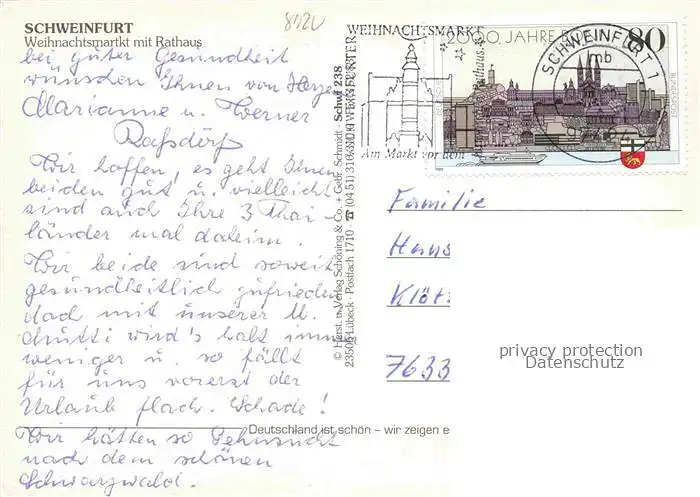 SCHWEINFURT
Weihnachtsmartkt mit Rathaus
bei guter Gesundheit
wünschen Ihnen von Herzen
Marianne u. Werner
Wir hoffen, es geht Ihnen
beiden gut u. vielleicht
sind auch Ihre 3 Thai-
länder mal daheim.
Wir beide sind soweit
gesundheitlich zufrieden
doch mit unserer
Mutti wird's halt immer
weniger u. so fällt
für uns vorerst der
Urlaub flach. Schade!
Wir hätten so Sehnsucht
nach dem schönen
Schwarzwald.
Deutschland ist schön – wir zeigen e
© Herst. u. Verlag Schöning & Co. + Gebr. Schmidt · Schwf 238
23506 Lübeck · Postfach 1710 · ☎ (04 51) 31 03
WEIHNACHTSMARKT
Am Markt vor dem
2000 JAHRE
80
SCHWEINFURT 1
mb
Familie
Hans
7633
privacy protection
Datenschutz